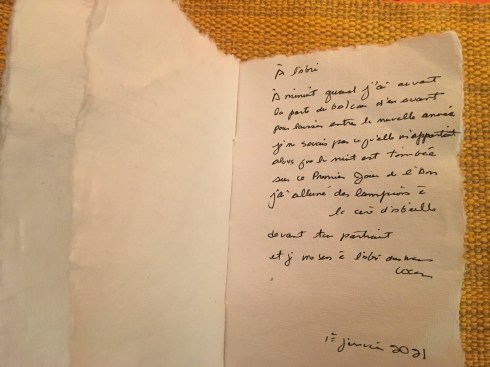 À l'abri
À minuit quand j'ai ouvert
la porte du balcon d'en avant
pour laisser entrer la nouvelle année
je ne savais pas ce qu'elle m'apportait
alors que la nuit est tombée
sur ce Premier Jour de l'An
j'ai allumé des lampions à
la cire d'abeille
devant ton portrait
et je me sens à l'abri dans
1er janvier 2021